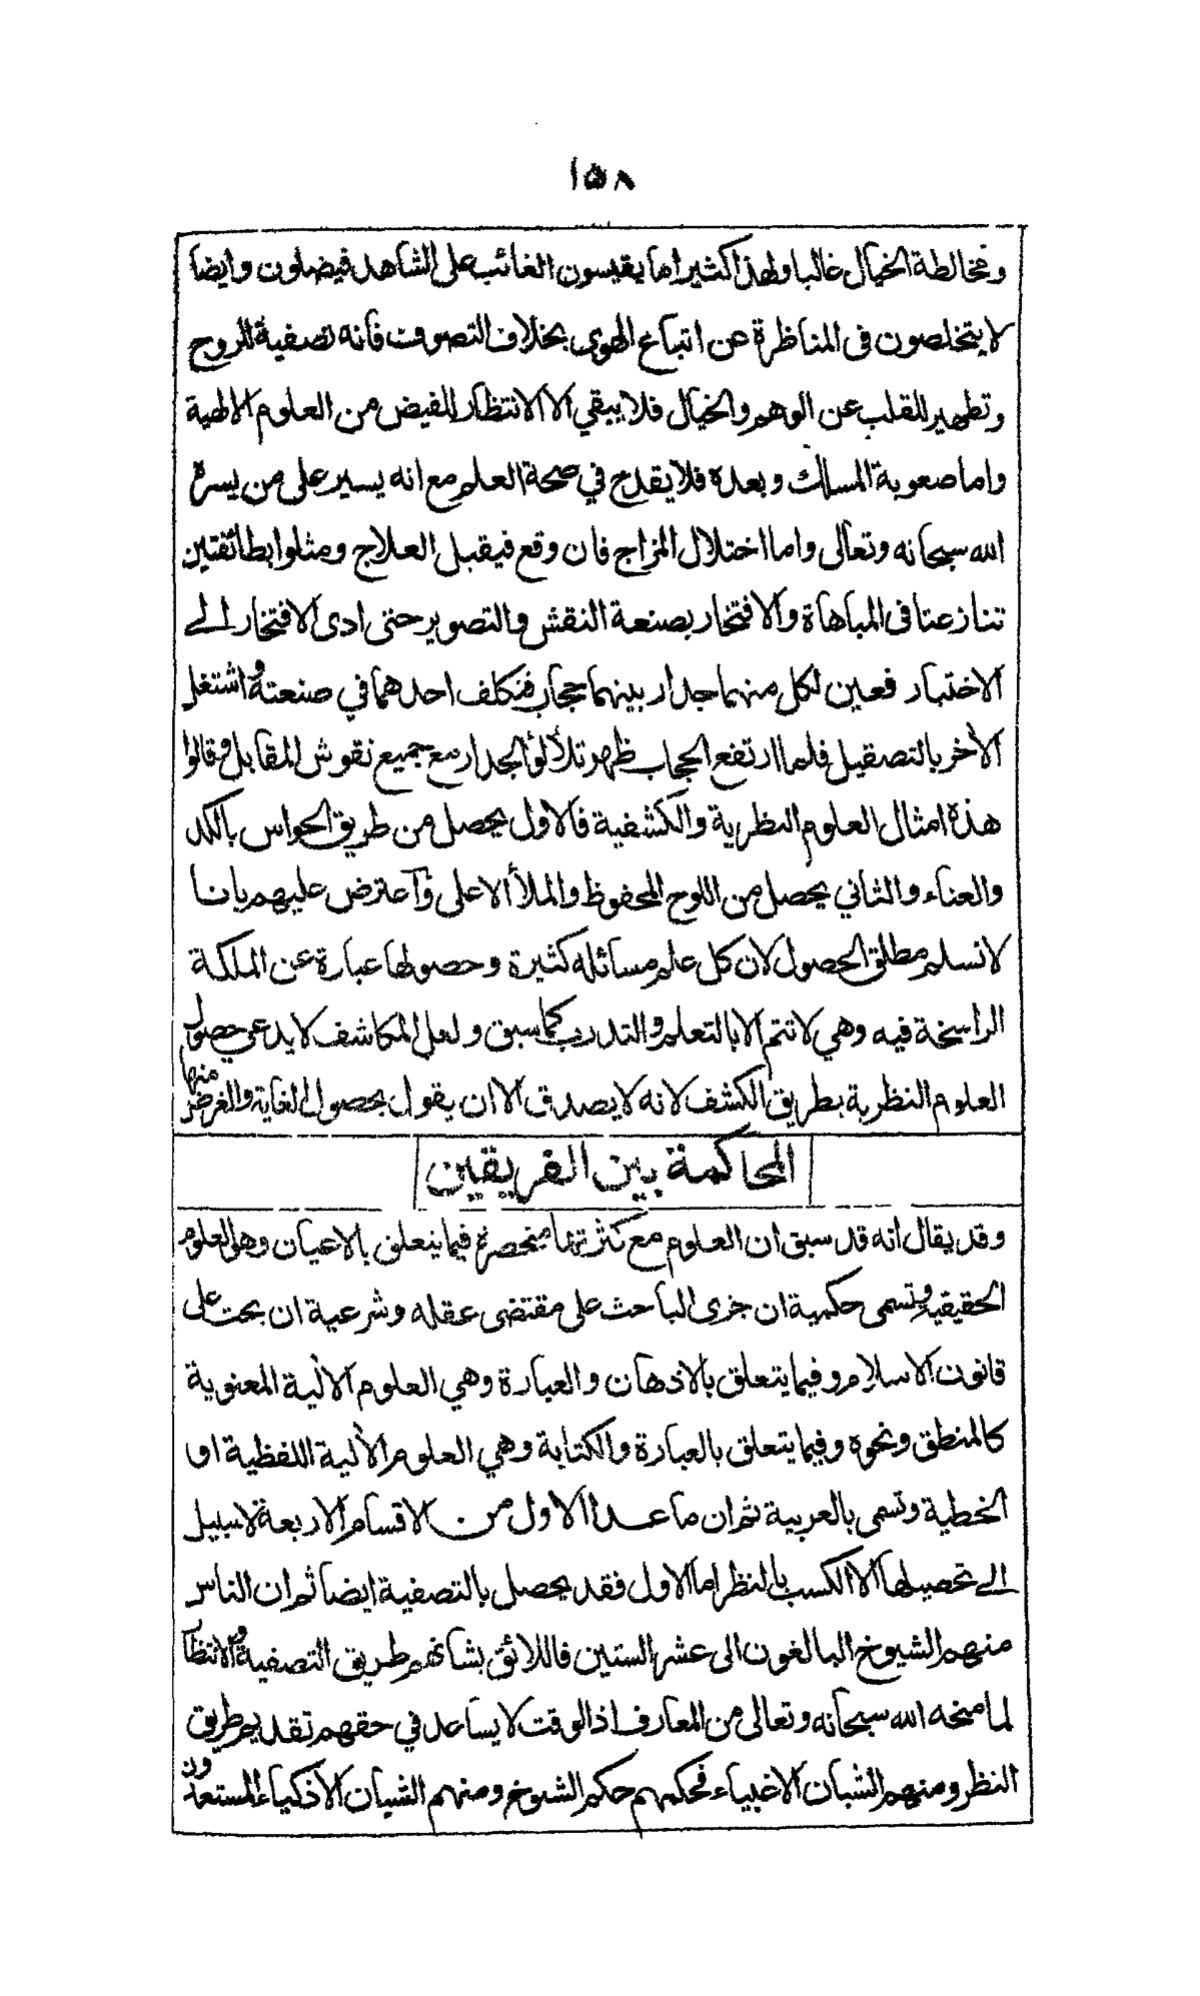 ١٥٨
ومخالطة الخيال غالبا ولهذا كثيرا ما يقيسون الغائب على الشاهد فيضلون وايضا
لا يتخلصون فى المناظرة عن اتباع الهوى بخلاف التصوف فانه تصفية للروح
وتطهير للقلب عن الوهم والخيال فلا يبقي الا الانتظار للفيض من العلوم الالهية
واما صعوبة المسلك وبعده فلا يقدح في صحة العلم مع انه يسير على من يسره
الله سبحانه وتعالى واما اختلال المزاج فان وقع فيقبل العلاج ومثلوا بطائفتين
تنازعتا فى المباهاة والافتخار بصنعة النقش والتصوير حتى ادى الافتخار الى
الاختبار فعين لكل منهما جدار بينهما حجاب فتكلف احدهما في صنعته واشتغل
الآخر بالتصقيل فلما ارتفع الحجاب ظهر تلألؤ الجدار مع جميع نقوش المقابل وقالوا
هذه امثال العلوم النظرية والكشفية فالاول يحصل من طريق الحواس بالكد
والعناء والثاني يحصل من اللوح المحفوظ والملأ الاعلى وآعترض عليهم بانا
لا نسلم مطلق الحصول لان كل علم مسائله كثيرة وحصولها عبارة عن الملكة
الراسخة فيه وهي لا تتم الا بالتعلم والتدرب كما سبق ولعل المكاشف لا يدعي حصول
العلوم النظرية بطريق الكشف لانه لا يصدق الا ان يقول بحصول الغاية والغرض منها
المحاكمة بين الفريقين
وقد يقال انه قد سبق ان العلوم مع كثرتها منحصرة فيما يتعلق بالاعيان وهو العلوم
الحقيقية وتسمى حكمية ان جرى الباحث على مقتضى عقله وشرعية ان بحث على
قانون الاسلام وفيما يتعلق بالاذهان والعبارة وهي العلوم الآلية المعنوية
كالمنطق ونحوه وفيما يتعلق بالعبارة والكتابة وهي العلوم الآلية اللفظية او
الخطية وتسمى بالعربية ثم ان ما عدا الاول من الاقسام الاربعة لا سبيل
الى تحصيلها الا الكسب بالنظر اما الاول فقد يحصل بالتصفية ايضا ثم ان الناس
منهم الشيوخ البالغون الى عشر الستين فاللائق بشانهم طريق التصفية والانتظار
لما منحه الله سبحانه وتعالى من المعارف اذ الوقت لا يساعد في حقهم تقديم طريق
النظر ومنهم الشبان الاغبياء فحكمهم حكم الشيوخ ومنهم الشبان الاذكياء المستعدون